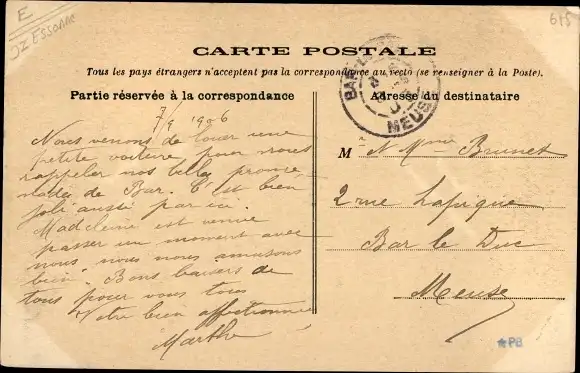 E
JZ ESSONNE
615
CARTE POSTALE
Tous les pays étrangers n'acceptent pas la correspondance au recto (se renseigner à la Poste).
Partie réservée à la correspondance
Adresse du destinataire
BAR-LE-DUC
MEUSE
7/9 1906
Nous venons de louer une
petite voiture pour nous
rappeler nos belles prome
nades de Bar. C'est bien
joli aussi par ici.
Madeleine est venue
passer un moment avec
nous, nous nous amusons
bien. Bons baisers de
tous pour vous tous
Votre bien affectionnée
Marthe
M r et Mme Brunet
2 rue Lapique
Bar le Duc
Meuse
*PB